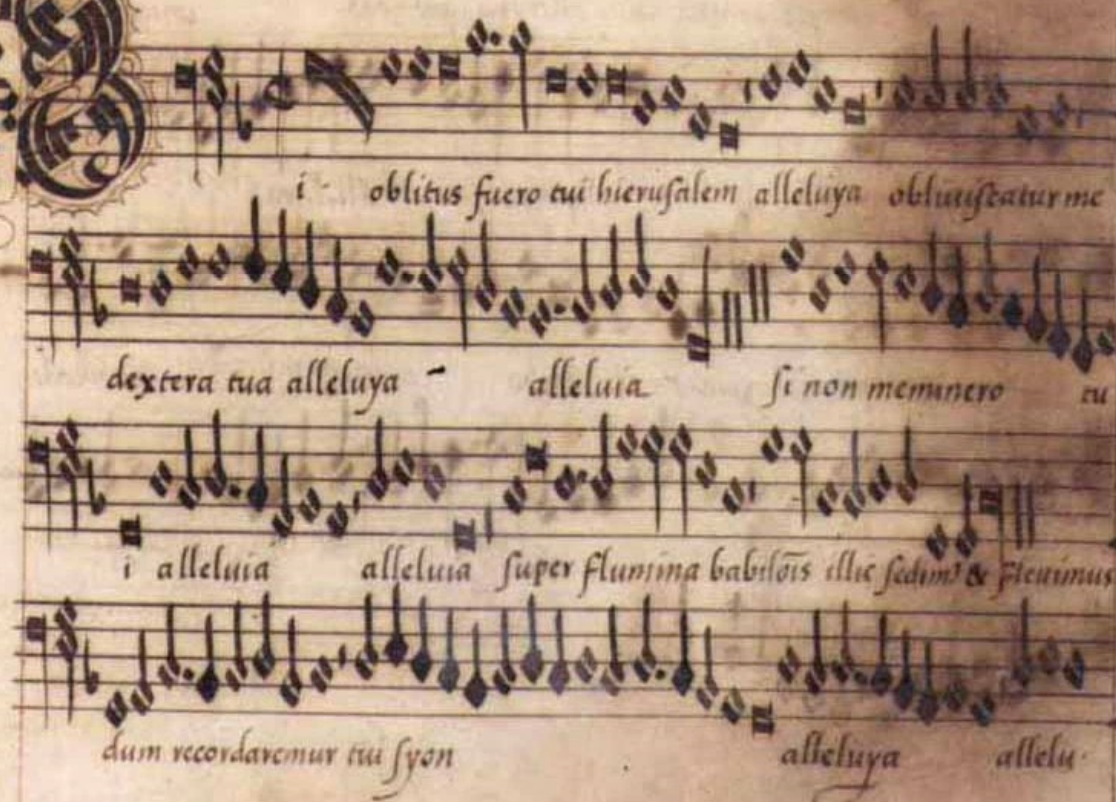 Si oblitus fuero tui hierusalem alleluya obliuiscatur me
dextera tua alleluya alleluia si non meminero tu
i alleluia alleluia super flumina babilōis illic sedim⁹ & fleuimus
dum recordaremur tui syon alleluya allelu